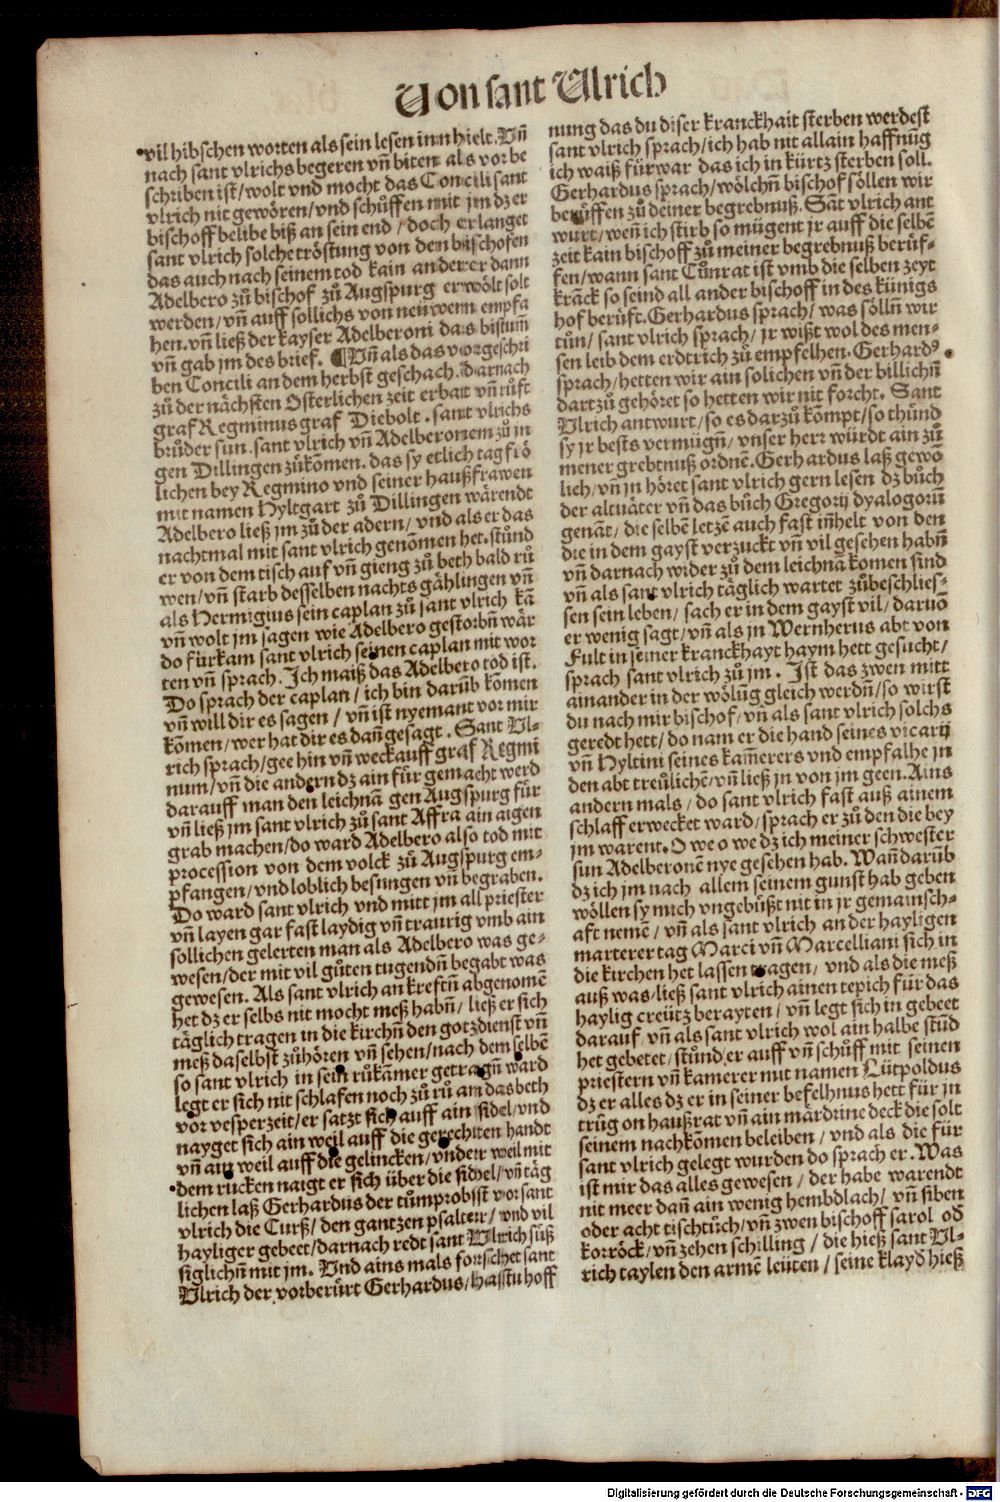 Von sant Ulrich
vil hibschen worten als sein lesen inn hielt. Vñ
nach sant vlrichs begeren vñ biten als vor be
schriben ist/wolt vnd mocht das Concili sant
vlrich nit gewören/vnd schůffen mit jm dz er
bischoff belibe biß an sein end/doch erlanget
sant vlrich solche tröstung von den bischofen
das auch nach seinem tod kain anderer dann
Adelbero zů bischof zů Augspurg erwölt solt
werden/vñ auff sollichs von neüwem empfa
hen. vñ ließ der kayser Adelberoni das bistum̃
vñ gab jm des brief. ¶Vñ als das vorgeschri
ben Concili an dem herbst geschach. Darnach
zů der nächsten Osterlichen zeit erbatt vñ růfft
graf Regminus graf Diebolt. sant vlrichs
brůder sun. sant vlrich vñ Adelberonem zů jn
gen Dillingen zůkõmen. das sy etlich tag frö
lichen bey Regmino vnd seiner haußfrawen
mit namen Hyltgart zů Dillingen wärendt
Adelbero ließ jm zů der adern/vnd als er das
nachtmal mit sant vlrich genõmen het. stůnd
er von dem tisch auf vñ gieng zů beth bald rů
wen/vñ starb desselben nachts gählingen vñ
als Hermigius sein caplan zů sant vlrich kã
vñ wolt jm sagen wie Adelbero gestorbñ wär
do fürkam sant vlrich seinen caplan mit wor
ten vñ sprach. Ich maiß das Adelbero tod ist.
Do sprach der caplan/ich bin darũb kõmen
vñ will dir es sagen/vñ ist nyemant vor mir
kõmen/wer hat dir es dañ gesagt. Sant Vl-
rich sprach/gee hin vñ weckauff graf Regmi
num/vñ die andern dz ain für gemacht werd
darauff man den leichnã gen Augspurg für
vñ ließ jm sant vlrich zů sant Affra ain aigen
grab machen/do ward Adelbero also tod mit
procession von dem volck zů Augspurg em-
pfangen/vnd loblich besungen vñ begraben.
Do ward sant vlrich vnd mitt jm all priester
vñ layen gar fast laydig vñ traurig vmb ain
sollichen gelerten man als Adelbero was ge-
wesen/der mit vil gůten tugendñ begabt was
gewesen. Als sant vlrich an kreftñ abgenomẽ
het dz er selbs nit mocht meß habñ/ließ er sich
täglich tragen in die kirchñ den gotzdienst vñ
meß daselbst zůhören vñ sehen/nach dem selbẽ
so sant vlrich in sein růkãmer getragñ ward
legt er sich nit schlafen noch zů rů an das beth
vor vesperzeit/er satzt sich auff ain sidel/vnd
nayget sich ain weil auff die gerechten handt
vñ ain weil auff die gelincken/vnder weil mit
dem rucken naigt er sich über die sidel/vñ täg
lichen laß Gerhardus der tůmprobsst vor sant
vlrich die Curß/den gantzen psalter/vnd vil
hayliger gebeet/darnach redt sant Vlrich süß
siglichñ mit jm. Vnd ains mals forschet sant
Vlrich der vorberürt Gerhardus/hastu hoff
nung das du diser kranckhait sterben werdest
sant vlrich sprach/ich hab nit allain haffnũg
ich waiß fürwar das ich in kürtz sterben soll.
Gerhardus sprach/wölchñ bischof söllen wir
berůffen zů deiner begrebnuß. Sãt vlrich ant
wurt/weñ ich stirb so mügent jr auff die selbẽ
zeit kain bischoff zů meiner begrebnuß berüf-
fen/wann sant Cůnrat ist vmb die selben zeyt
krãck so seind all ander bischoff in des künigs
hof berüft. Gerhardus sprach/was söllñ wir
tůn/sant vlrich sprach/jr wißt wol des men-
sen leib dem erdtrich zů empfelhen. Gerhardꝰ
sprach/hetten wir ain solichen vñ der billichñ
dartzů gehöret so hetten wir nit forcht. Sant
Vlrich antwurt/so es darzů kõmpt/so thůnd
sy jr bests vermügñ/vnser herr würdt ain zů
mener grebtnuß ordnẽ. Gerhardus laß gewo
lich/vñ jn höret sant vlrich gern lesen dz bůch
der altuäter vñ das bůch Gregorij dyalogorũ
genãt/die selbẽ letzẽ auch fast iñhelt von den
die in dem gayst verzuckt vñ vil gesehen habñ
vñ darnach wider zů dem leichnã komen sind
vñ als sant vlrich täglich wartet zůbeschlies-
sen sein leben/sach er in dem gayst vil/daruõ
er wenig sagt/vñ als jn Wernherus abt von
Fult in seiner kranckhayt haym hett gesucht/
sprach sant vlrich zů jm. Ist das zwen mitt
ainander in der wölũg gleich werdñ/so wirst
du nach mir bischof/vñ als sant vlrich solchs
geredt hett/do nam er die hand seines vicarij
vñ Hyltini seines kam̃erers vnd empfalhe jn
den abt treülichẽ/vñ ließ jn von jm geen. Ains
andern mals/do sant vlrich fast auß ainem
schlaff erwecket ward/sprach er zů den die bey
jm warent. O we o we dz ich meiner schwester
sun Adelberonẽ nye gesehen hab. Wañ darũb
dz ich jm nach allem seinem gunst hab geben
wöllen sy mich vngebůßt nit in jr gemainsch-
aft nemẽ/vñ als sant vlrich an der hayligen
marterer tag Marci vñ Marcelliani sich in
die kirchen het lassen tragen/vnd als die meß
auß was/ließ sant vlrich ainen tepich für das
haylig creütz berayten/vñ legt sich in gebeet
darauf vñ als sant vlrich wol ain halbe stũd
het gebetet/stůnd er auff vñ schůff mit seinen
priestern vñ kamerer mit namen Lütpoldus
dz er alles dz er in seiner befelhnus hett für jn
trůg on haußrat vñ ain märdrine deck die solt
seinem nachkõmen beleiben/vnd als die für
sant vlrich gelegt wurden do sprach er. Was
ist mir das alles gewesen/der habe warendt
nit meer dañ ain wenig hembdlach/vñ siben
oder acht tischtůch/vñ zwen bischoff sarol od
korröck/vñ zehen schilling/die hieß sant Vl-
rich taylen den armẽ leüten/seine klayd hieß
Digitalisierung gefördert durch die Deutsche Forschungsgemeinschaft - DFG